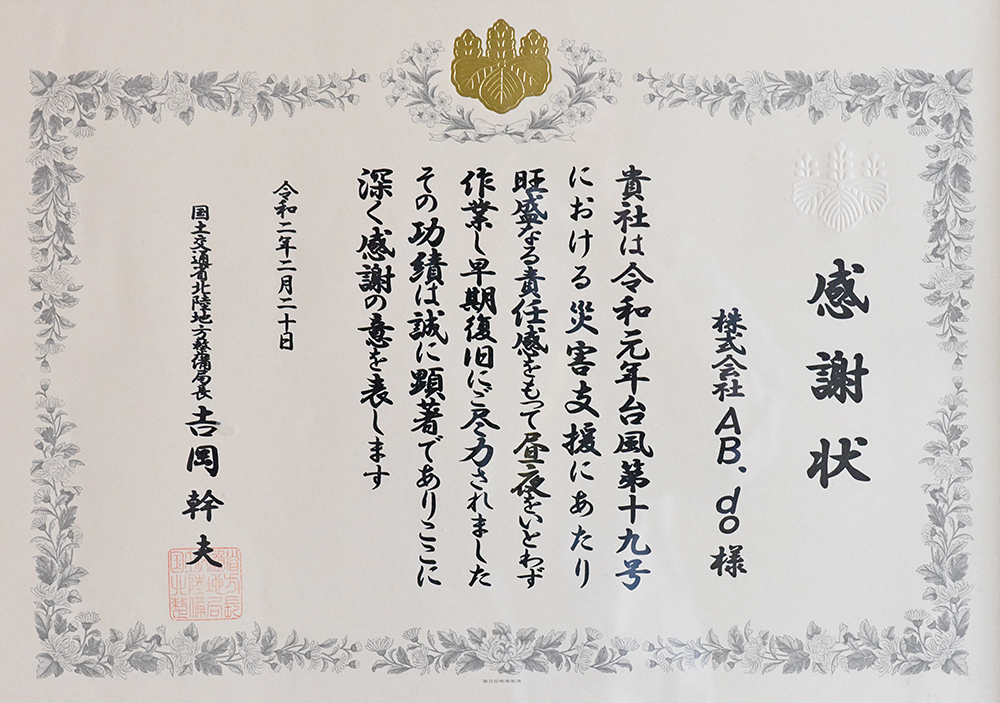 感謝状
株式会社AB.do様
貴社は令和元年台風第十九号
における災害支援にあたり
旺盛なる責任感をもって昼夜をいとわず
作業し早期復旧にご尽力されました
その功績は誠に顕著でありここに
深く感謝の意を表します
令和二年二月二十日
国土交通省北陸地方整備局長 吉岡幹夫